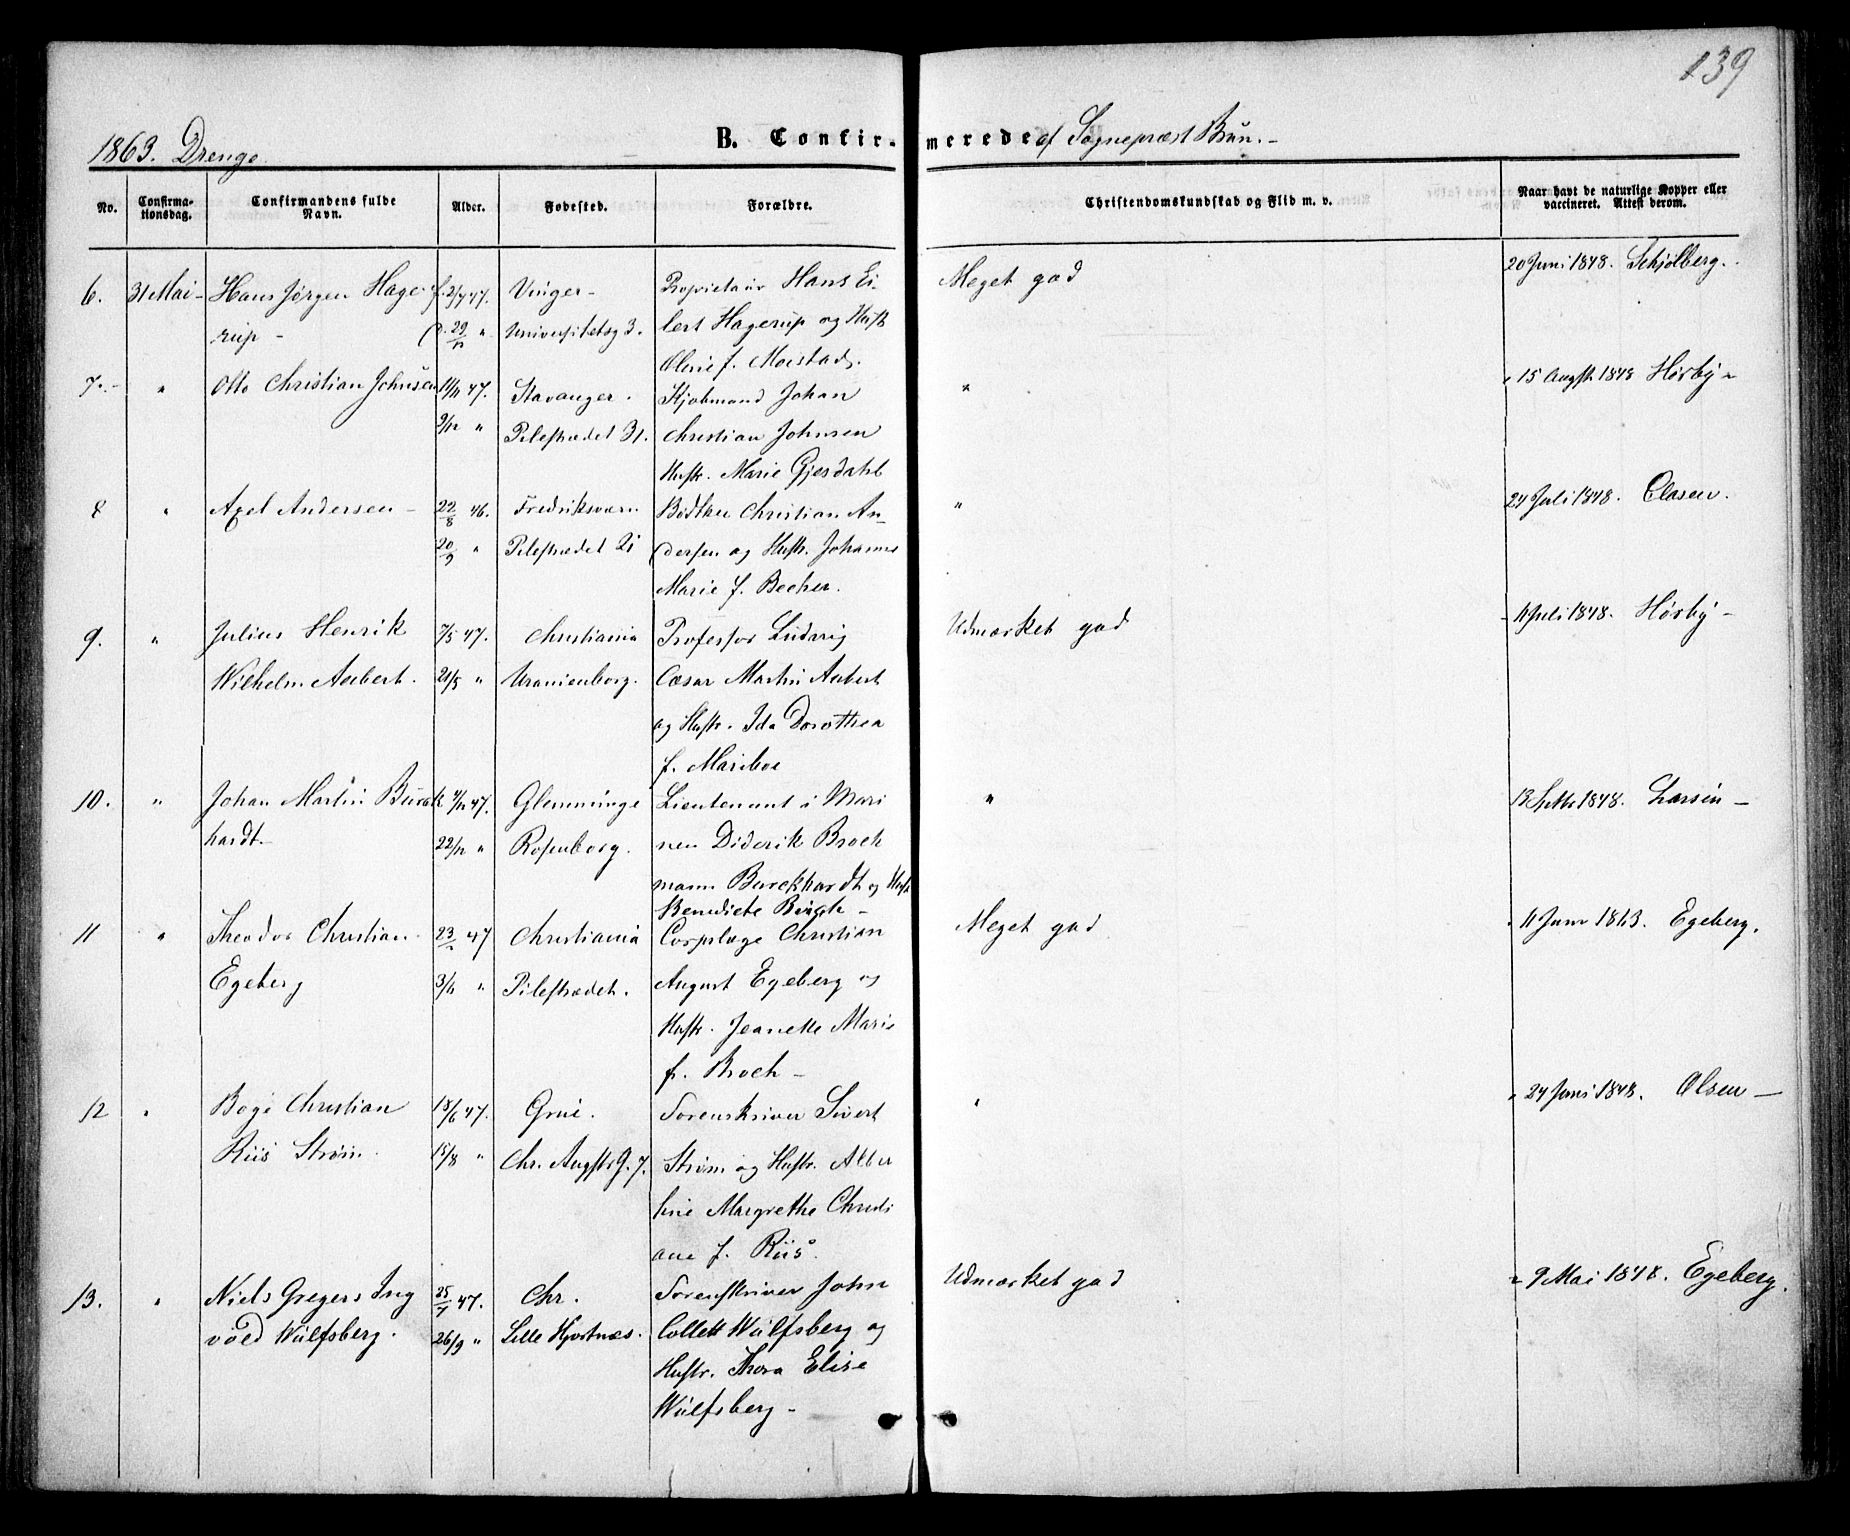 139
1863. Drenge
B. Confirmerede af Sognepræst Brun.-
No.
Confirmationsdag.
Confirmandens fulde Navn.
Alder.
Fødested.
Forældre.
Christendomskundskab og Flid m. v.
Naar havt de naturlige Kopper eller vaccineret. Attest derom.
6. 31 Mai- Hans Jørgen Hage f. 2/7 47. Vinger- Proprietair Hans Ei Meget god 20 Juni 1848. Schjølberg.
rup- 29/11 " Universitetsg 3. lert Hagerup og Hustr
Oline f. Moestad.
7.- " Otto Christian Johnsen 11/11 47. Stavanger. Kjøbmand Johan " " 15 Augst 1848 Hørby-
9/12 " Pilestrædet 31. Christian Johnsen
Hustr. Marie Gjesdahl
8 " Axel Andersen- 22/8 46. Fredriksværn Bødtker Christian An " 24 Juli 1848. Clasen.
20/9 " Pilestrædet 21 dersen og Hustr. Johanne
Marie f. Becher.
9. " Julius Henrik 7/5 47. Christiania Professor Ludvig Udmærket god - 11 Juli 1848. Hørby-
Wilhelm Aubert. 21/5 " Uranienborg. Cæsar Martin Aubert
og Hustr. Ida Dorothea
f. Mariboe
10. " Johan Martin Burck 4/11 47. Glemminge Lieutenant i Mari " 13 Septbr 1848. Larsen-
hardt.- 22/12 " Rosenborg. nen Diderik Broch
mann Burckhardt og Hustr
Benedicte Birch-
11 " Theodor Christian 23/2 47 Christiania Corpslæge Christian Meget god " 11 Juni 1863. Egeberg.
Egeberg " Pilestrædet. August Egeberg og
Hustr. Jeanette Marie
f. Broch-
12 " Boge Christian 18/6 47. Grue. Sorenskriver Sivert " " 24 Juni 1848. Olsen-
Riis Strøm. 15/8 " Chr. Augsts G. 7. Strøm og Hustr. Alber
tine Margrethe Christi
ane f. Riis.
13. " Niels Gregers Ing 25/7 47. Chr. Sorenskriver John Udmærket god " 9 Mai 1848. Egeberg.
vold Wulfsberg. 26/9 " Lille Hjortnæs. Collett Wulfsberg og
Hustr. Thora Elise
Wulfsberg-